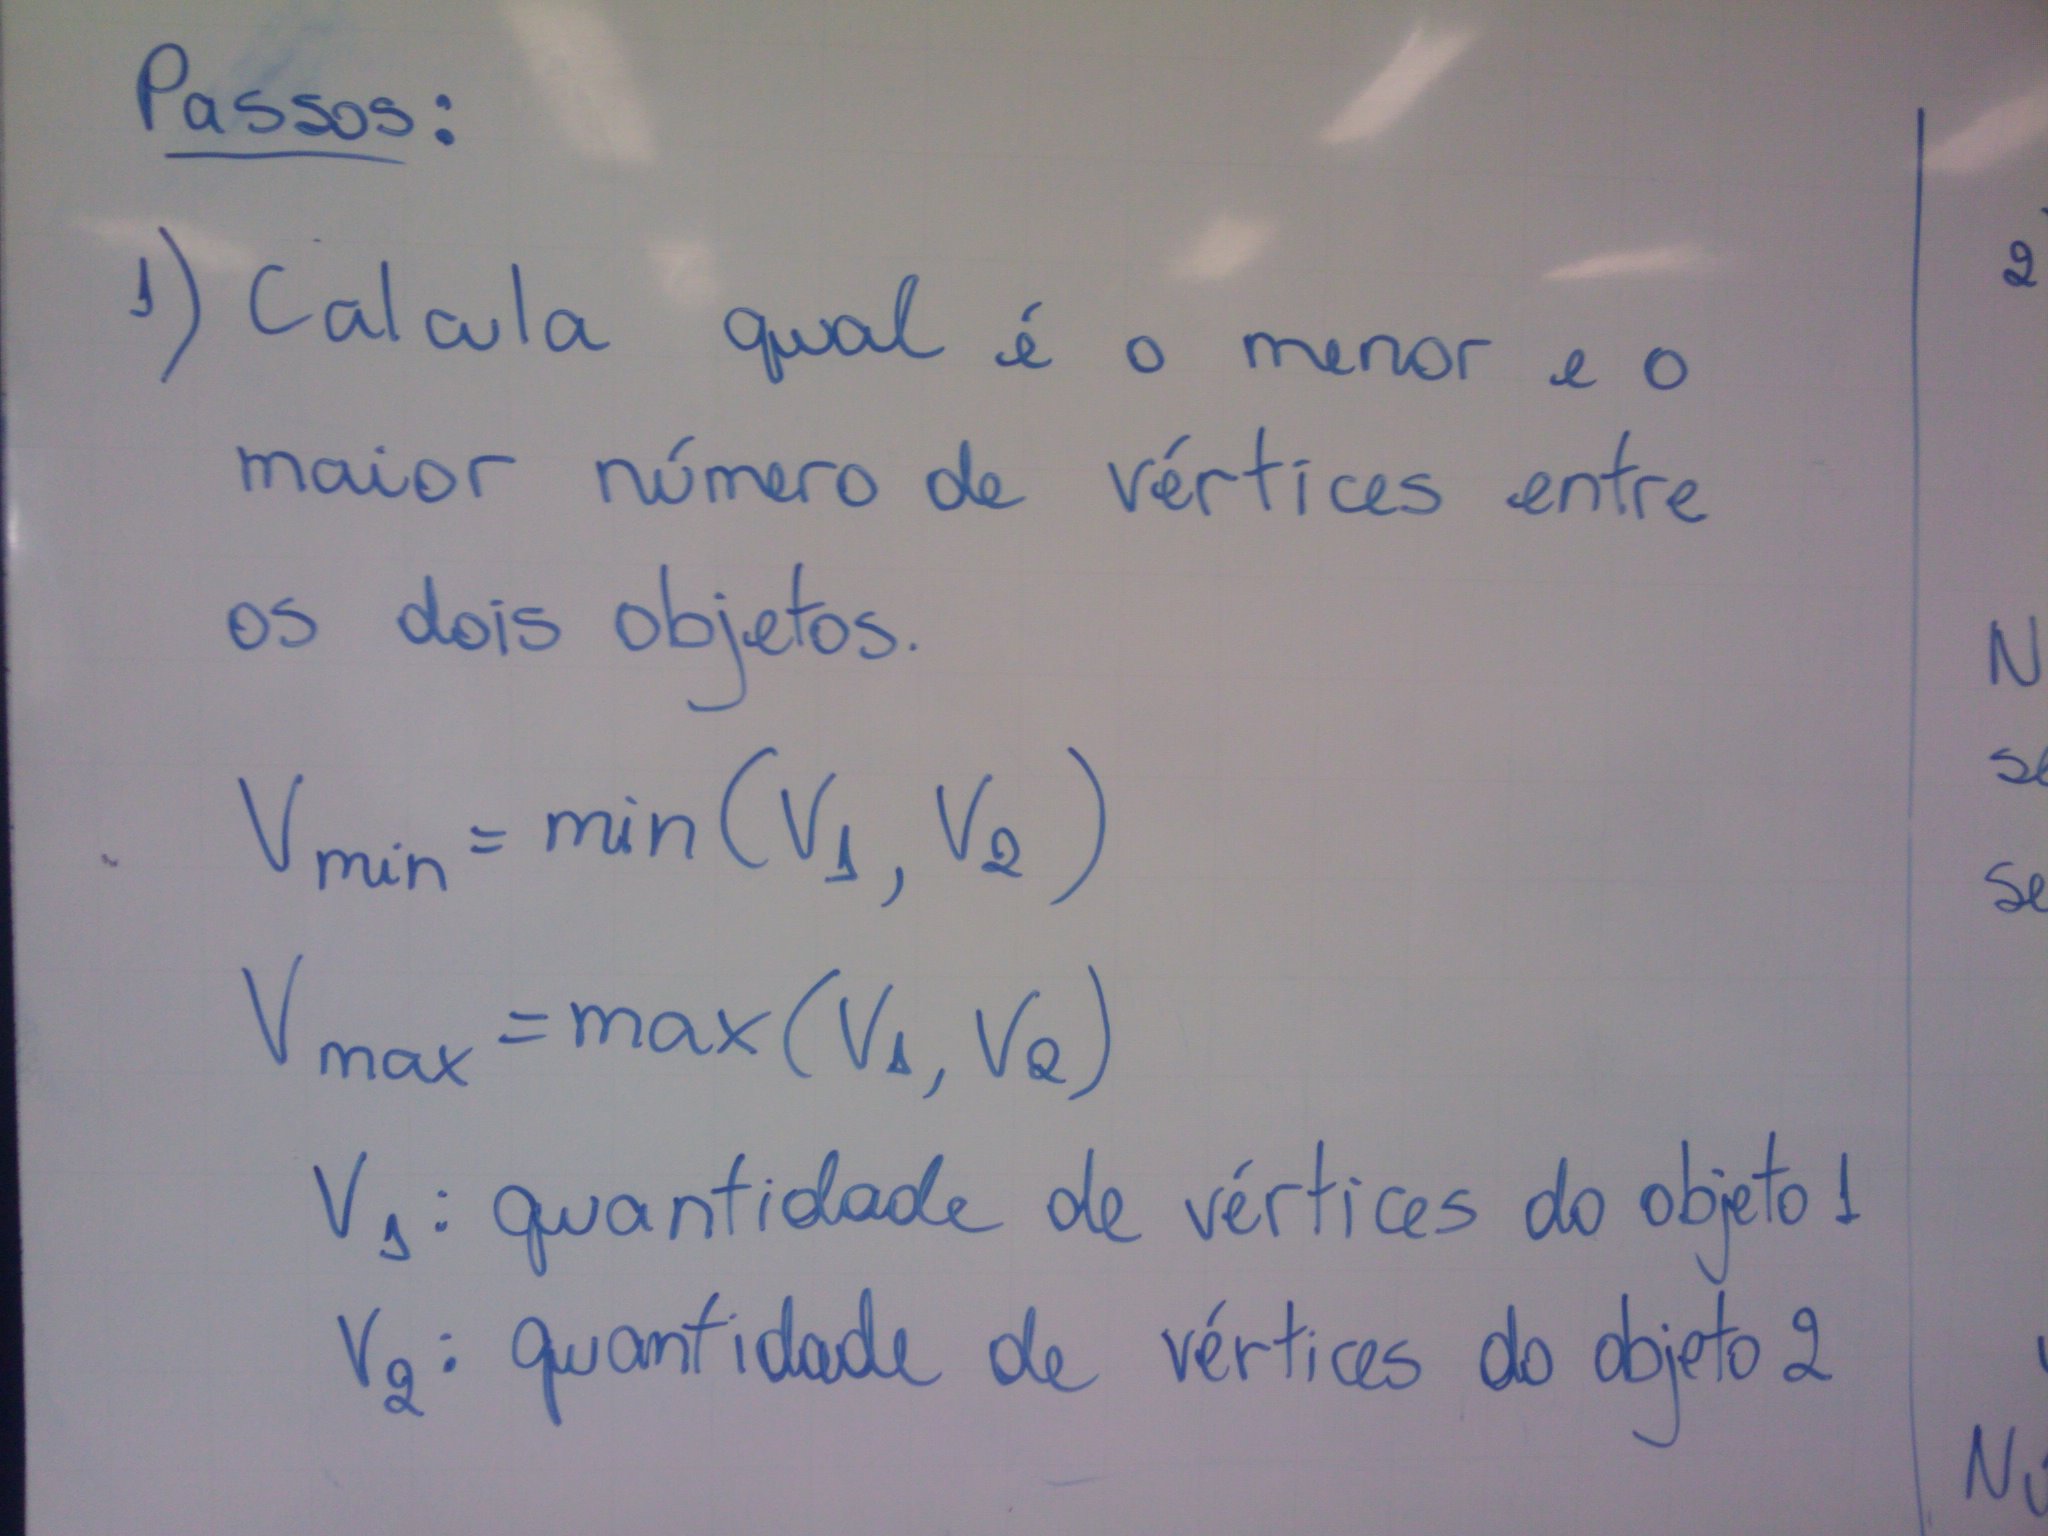 Passos:
1) Calcula qual é o menor e o
maior número de vértices entre
os dois objetos.
Vmin = min(V1, V2)
Vmax = max(V1, V2)
V1: quantidade de vértices do objeto 1
V2: quantidade de vértices do objeto 2
2